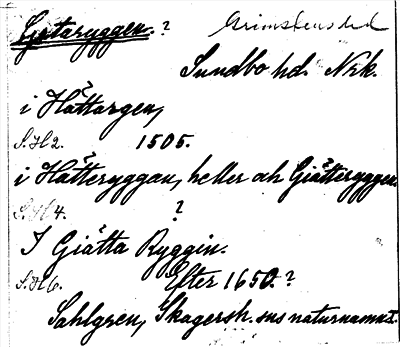 Gjotaryggen. ? Grimstens hd
Sundbo hd. Nrk.
i Håttargen,
S.H2. 1505.
i Hätteryggan, heller och Giätteryggen.
S.H4. ?
I Giätta Ryggin.
S.H6. Efter 1650. ?
Sahlgren, Skagersh. sns naturnamn 1.